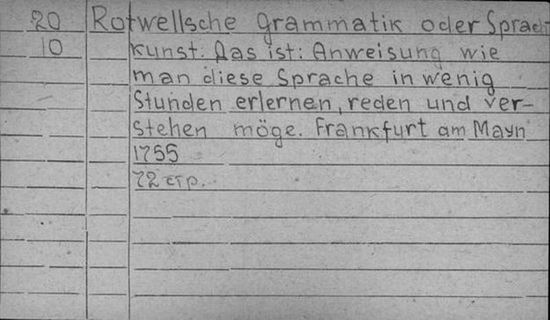 20 Rotwellsche Grammatik oder Sprach
10 kunst. Das ist: Anweisung wie
man diese Sprache in wenig
Stunden erlernen, reden und ver-
stehen möge. Frankfurt am Mayn
1755
72 стр.